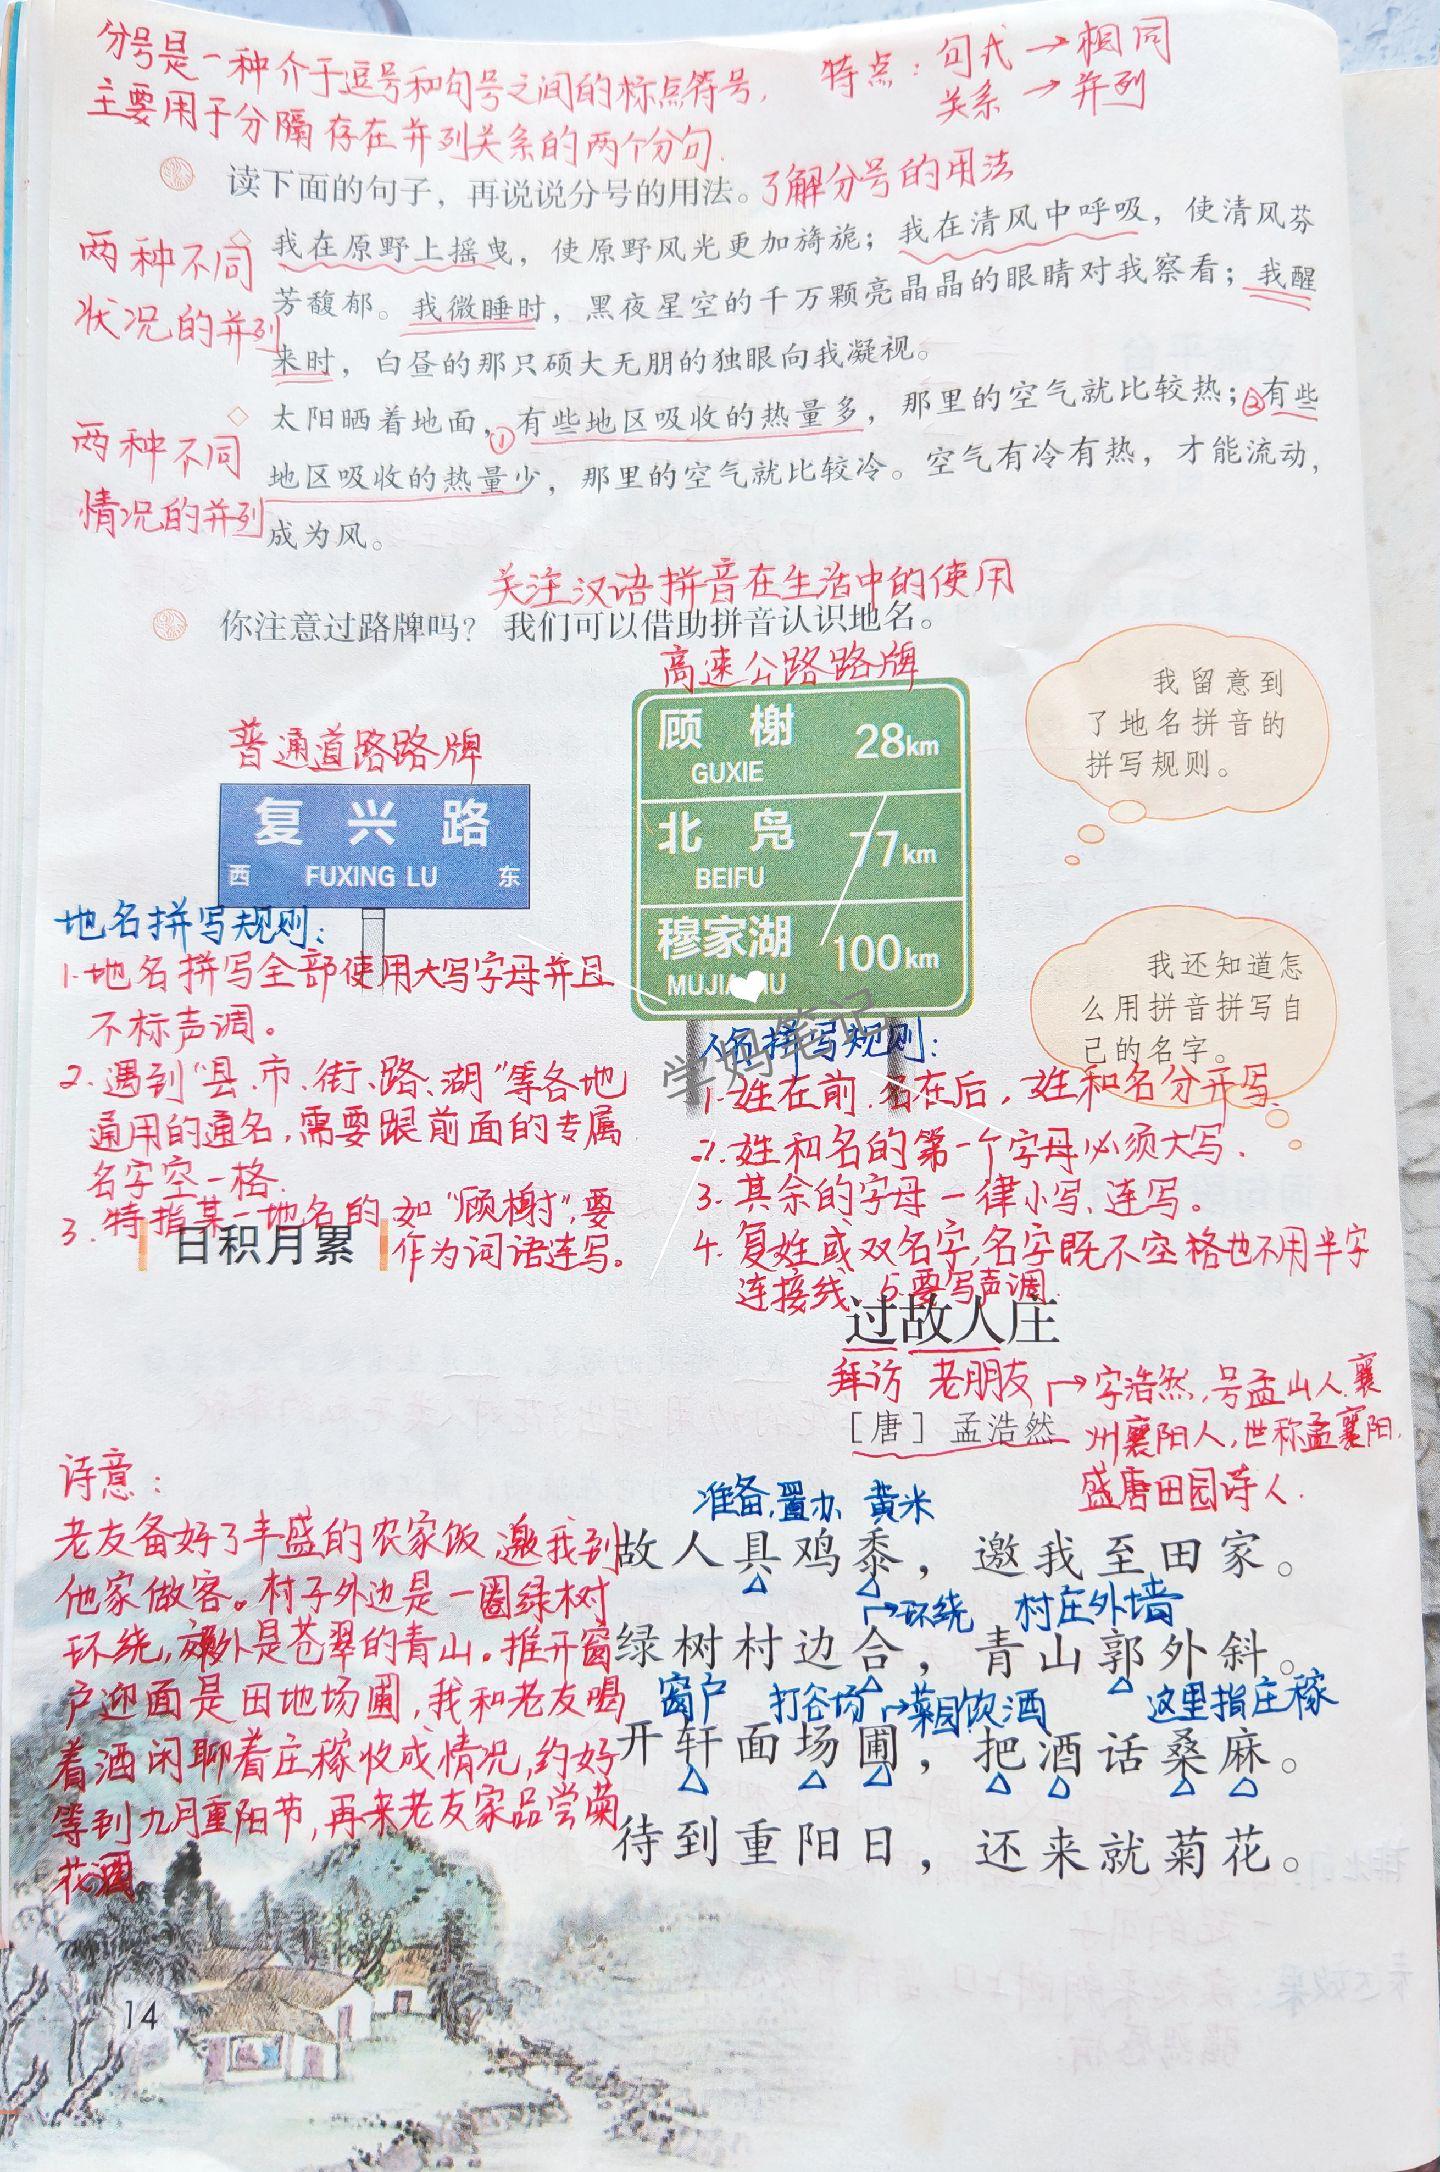 分号是一种介于逗号和句号之间的标点符号,
主要用于分隔存在并列关系的两个分句.
特点：句式→相同
关系→并列
读下面的句子，再说说分号的用法。
了解分号的用法
两种不同
状况的并列
我在原野上摇曳，使原野风光更加旖旎；我在清风中呼吸，使清风芬
芳馥郁。我微睡时，黑夜星空的千万颗亮晶晶的眼睛对我察看；我醒
来时，白昼的那只硕大无朋的独眼向我凝视。
两种不同
情况的并列
太阳晒着地面，①有些地区吸收的热量多，那里的空气就比较热；②有些
地区吸收的热量少，那里的空气就比较冷。空气有冷有热，才能流动，
成为风。
关注汉语拼音在生活中的使用
你注意过路牌吗？我们可以借助拼音认识地名。
普通道路路牌
复兴路
西 FUXING LU 东
高速公路路牌
顾榭 28km
GUXIE
北凫 77km
BEIFU
穆家湖 100km
我留意到
了地名拼音的
拼写规则。
我还知道怎
么用拼音拼写自
己的名字。
学妈笔记
地名拼写规则：
1.地名拼写全部使用大写字母并且
不标声调。
2.遇到“县、市、街、路、湖”等各地
通用的通名,需要跟前面的专属
名字空一格.
3.特指某一地名的,如“顾榭”,要
作为词语连写。
人名拼写规则：
1.姓在前.名在后,姓和名分开写.
2.姓和名的第一个字母必须大写.
3.其余的字母一律小写、连写。
4.复姓或双名字,名字既不空格也不用半字
连接线. 5.要写声调.
日积月累
过故人庄
拜访 老朋友
[唐]孟浩然
→字浩然,号孟山人.襄
州襄阳人,世称孟襄阳.
盛唐田园诗人.
诗意：
老友备好了丰盛的农家饭,邀我到
他家做客。村子外边是一圈绿树
环绕,郊外是苍翠的青山。推开窗
户迎面是田地场圃,我和老友喝
着酒闲聊着庄稼收成情况,约好
等到九月重阳节,再来老友家品尝菊
花酒
准备,置办 黄米
故人具鸡黍，邀我至田家。
→环绕 村庄外墙
绿树村边合，青山郭外斜。
窗户 打谷场 →菜园 饮酒 这里指庄稼
开轩面场圃，把酒话桑麻。
待到重阳日，还来就菊花。
14